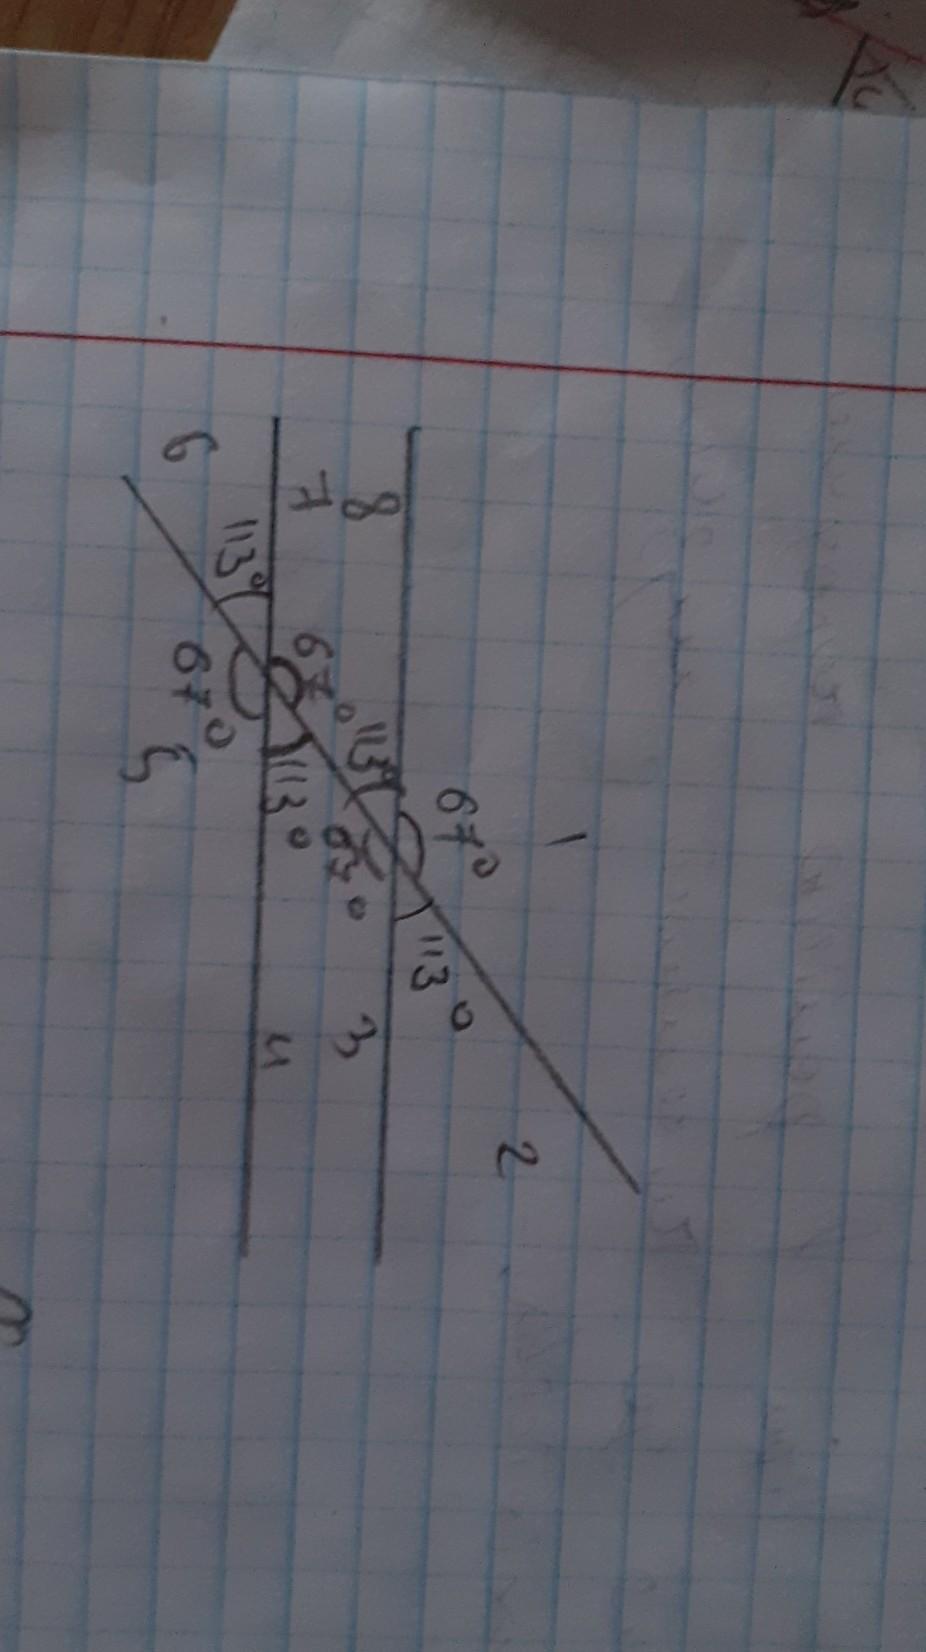 1
67°
113°
2
8
113°
67°
3
7
67°
113°
4
6
113°
67°
5